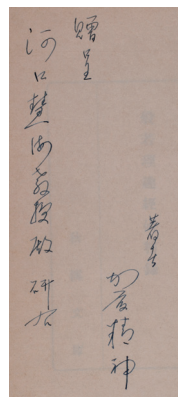 贈呈
河口慧海教授殿 研右
著者
加藤精神